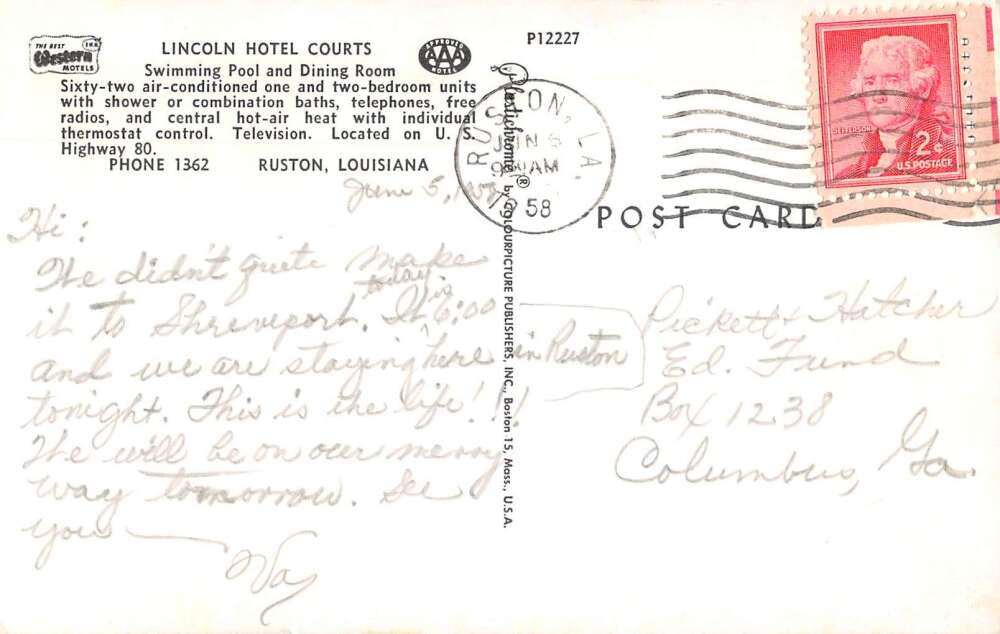 THE BEST
Western
MOTELS
LINCOLN HOTEL COURTS
Swimming Pool and Dining Room
Sixty-two air-conditioned one and two-bedroom units
with shower or combination baths, telephones, free
radios, and central hot-air heat with individual
thermostat control. Television. Located on U. S.
Highway 80.
PHONE 1362 RUSTON, LOUISIANA
APPROVED
AAA
P12227
RUSTON, LA.
JUN 6
AM
1958
JEFFERSON
2¢
U.S. POSTAGE
POST CARD
Plastichrome® by COLOURPICTURE PUBLISHERS, INC., Boston 15, Mass., U.S.A.
June 5, 1958
Hi:
We didn't quite make
it to Shreveport today. It is 6:00
and we are staying here in Ruston
tonight. This is the life!!!
We will be on our merry
way tomorrow. See
you —
Pickett & Hatcher
Ed. Fund
Box 1238
Columbus, Ga.